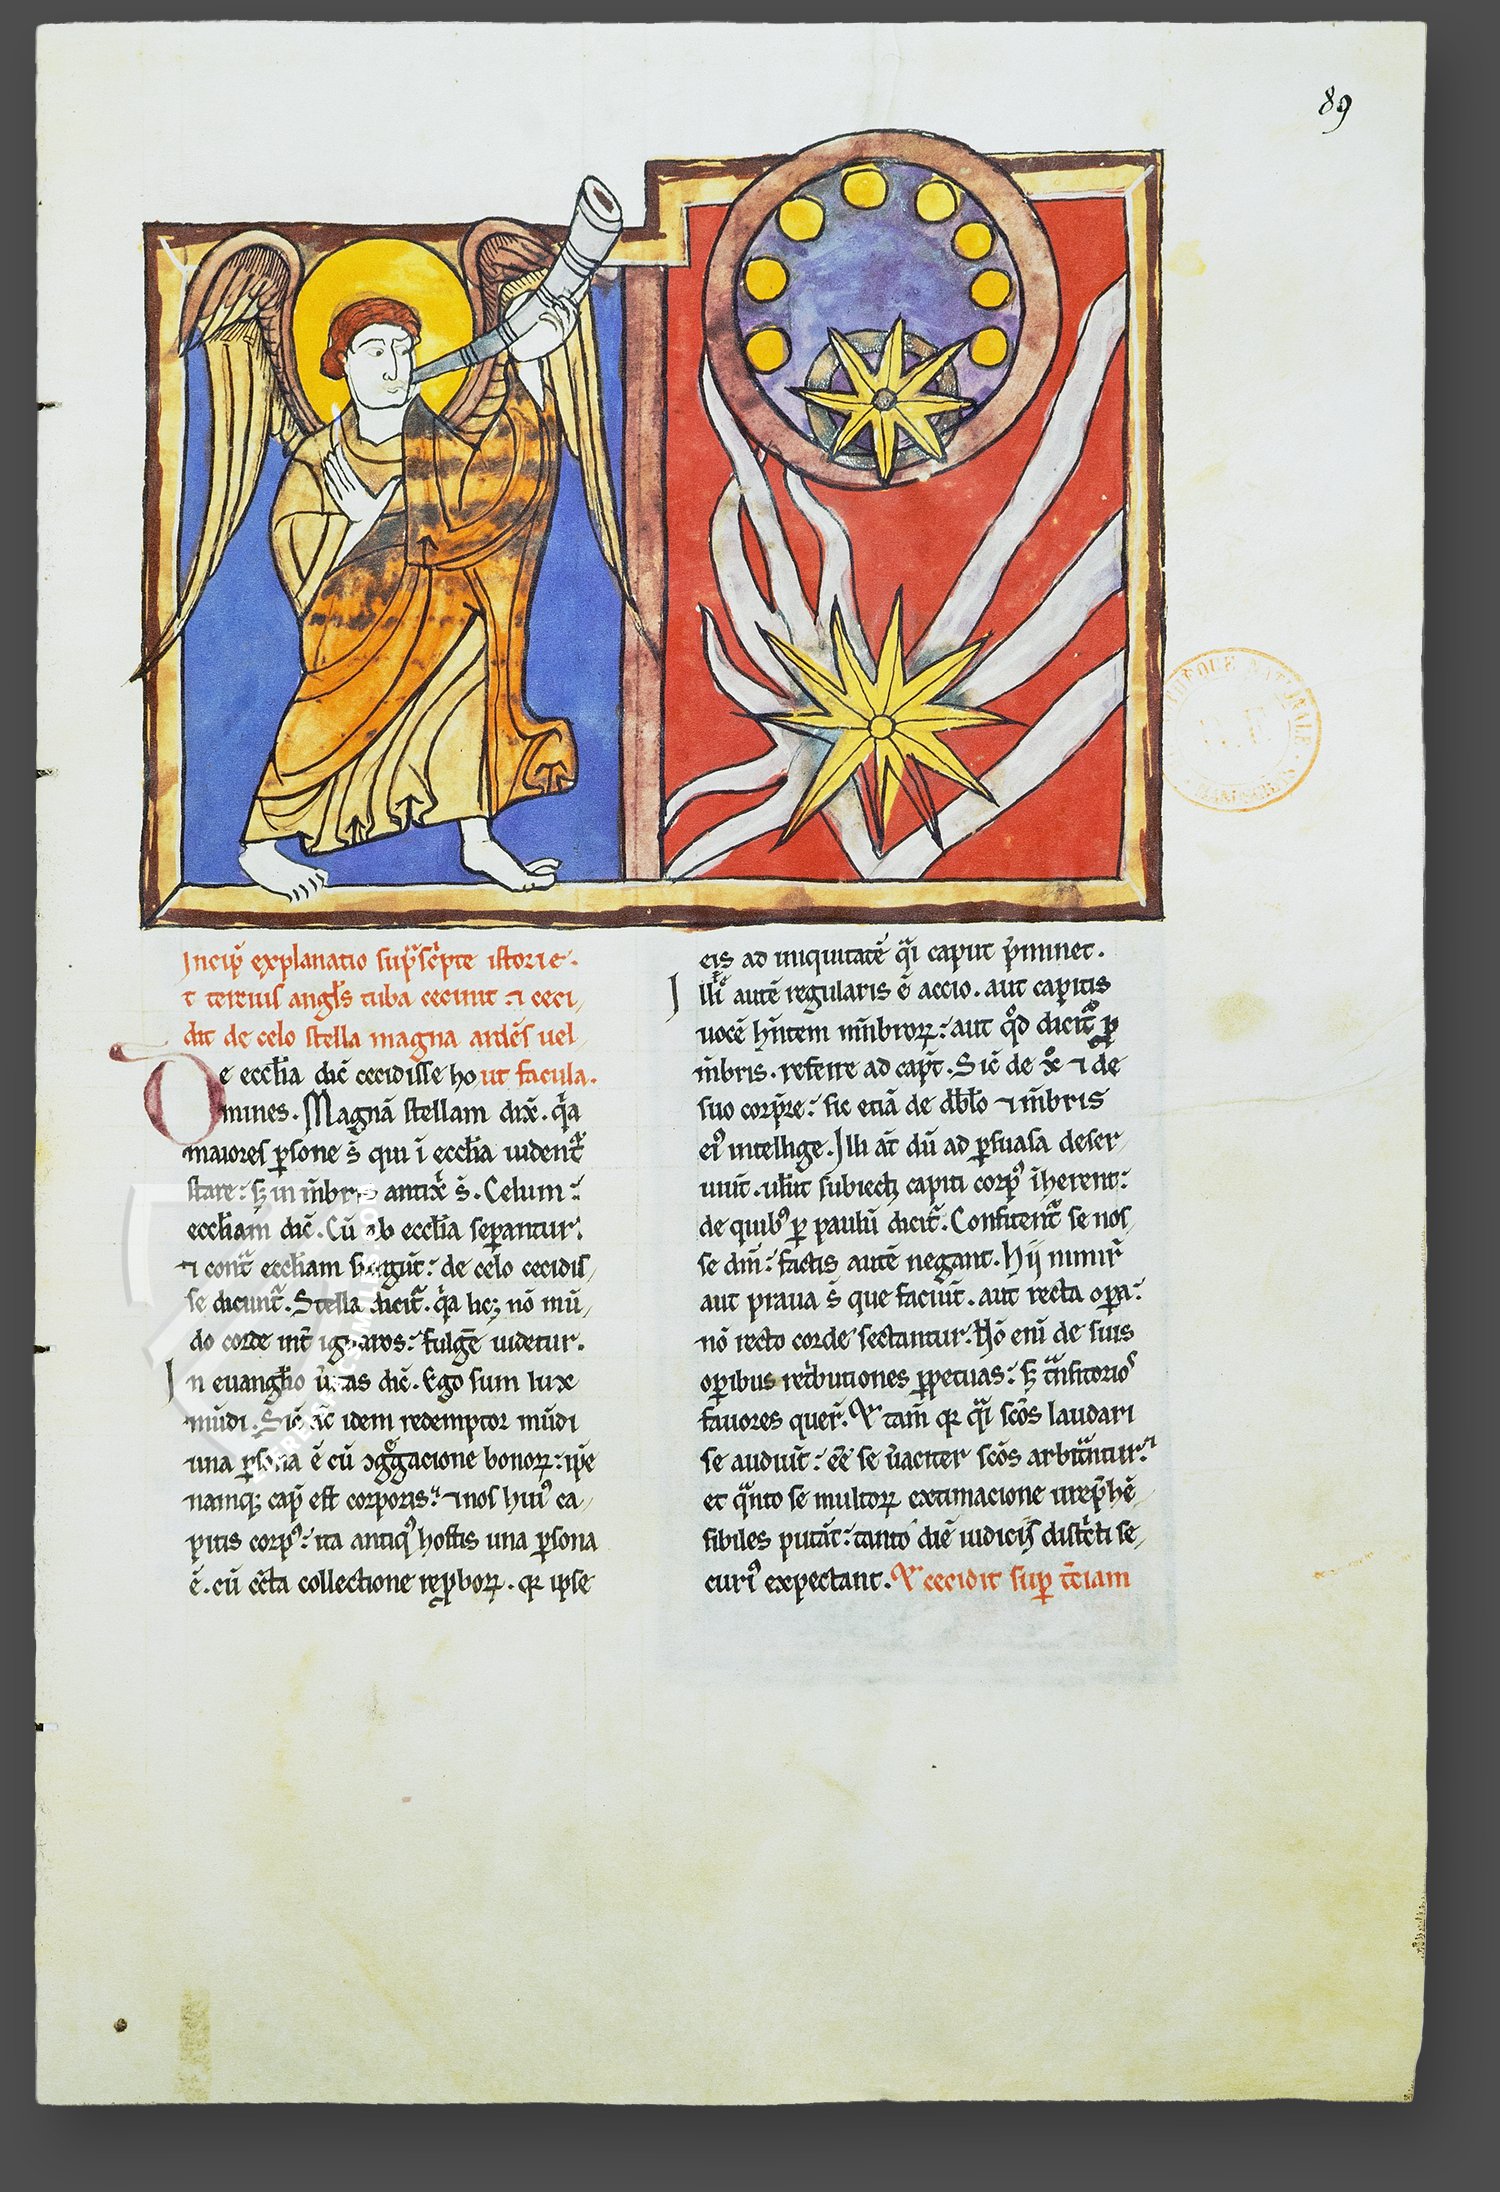 89
Incip̄ explanatio sup̄sc̄pte istorie.
t terius angl̄s tuba cecinit ⁊ ceci
dit de celo stella magna ardēs uel
De eccl̄ia dic̄ cecidisse ho ut facula.
mines. Magnā stellam dix̄. q̄a
maiores p̱sone s̄ qui ī eccl̄ia uident᷑
stare: sꝫ in m̄bris antix̄ s̄. Celum:
eccl̄iam dic̄. Cū ab eccl̄ia sep̱antur:
⁊ cont̄ eccl̄iam : de celo cecidis
se dicunt᷑. Stella dicit᷑. q̄a hec; nō mū
do corde int̄ ignaros: fulgē uidetur.
In euangl̄io ū̄itas dic̄. Ego sum lux
mūdi. Sic̄ āc idem redemptor mūdi
una p̱sona ē cū ꝯg̊gacione bonoꝝ: ip̄e
namqꝫ cap̄ est corporis: ⁊ nos huiꝰ ca
pitis corpꝰ: ita antiqꝰ hostis una p̱sona
ē. cū cc̄ta collectione rep̱boꝝ. qꝛ ipse
eis ad iniquitatē q̄i caput p̄minet.
Illi autē regularis ē accio. aut capitis
uocē hn̄tem mm̄broꝝ: aut qͦd dicit᷑ ꝓ
m̄bris. referre ad cap̄t. Sic̄ de xͦ ⁊ de
suo corp̱re: sic etiā de db̄lo ⁊ m̄bris
eiꝰ intellige. Illi āt dū ad p̱suasa deser
uiūt. ul̄ut subiecti capiti corpꝰ īherent:
de quibꝰ p̱ paulū dicit᷑. Confitent᷑ se nos
se dm̄: factis autē negant. Hij nimir̄
aut praua s̄ que faciūt. aut recta op̱a:
nō recto corde sectantur. Nō enī de suis
op̱ibus ret̄butiones p̱petuas: sꝫ t̄nsitorioˢ
fauores quer̄. Et tam̄ qꝛ q̄i sc̄os laudari
se audiūt: eē se ūaciter sc̄os arbit̄ntur:
et q̄nto se multoꝝ extimacione irrep̄hē
sibiles putāt: tanto diē iudicij dist̄cti se
curiꝰ expectant. Et cecidit sup̱ t̄ciam